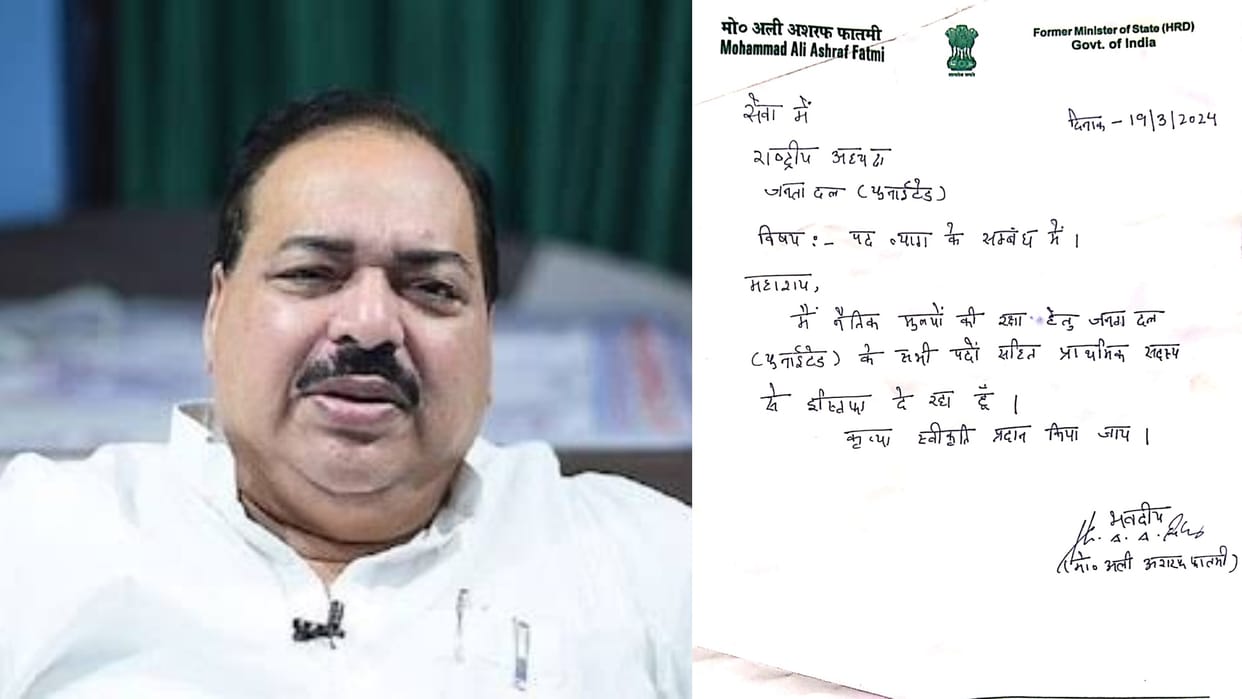 मो० अली अशरफ फातमी
Mohammad Ali Ashraf Fatmi
सत्यमेव जयते
Former Minister of State (HRD)
Govt. of India
सेवा में
दिनांक - 19/3/2024
राष्ट्रीय अध्यक्ष
जनता दल (यूनाईटेड)
विषय :- पद त्याग के सम्बंध में ।
महाशय,
मैं नैतिक मुल्यों की रक्षा हेतु जनता दल
(यूनाईटेड) के सभी पदों सहित प्राथमिक सदस्य
से इस्तिफा दे रहा हूँ ।
कृप्या स्वीकृति प्रदान किया जाय ।
भवदीय
(मो० अली अशरफ फातमी)